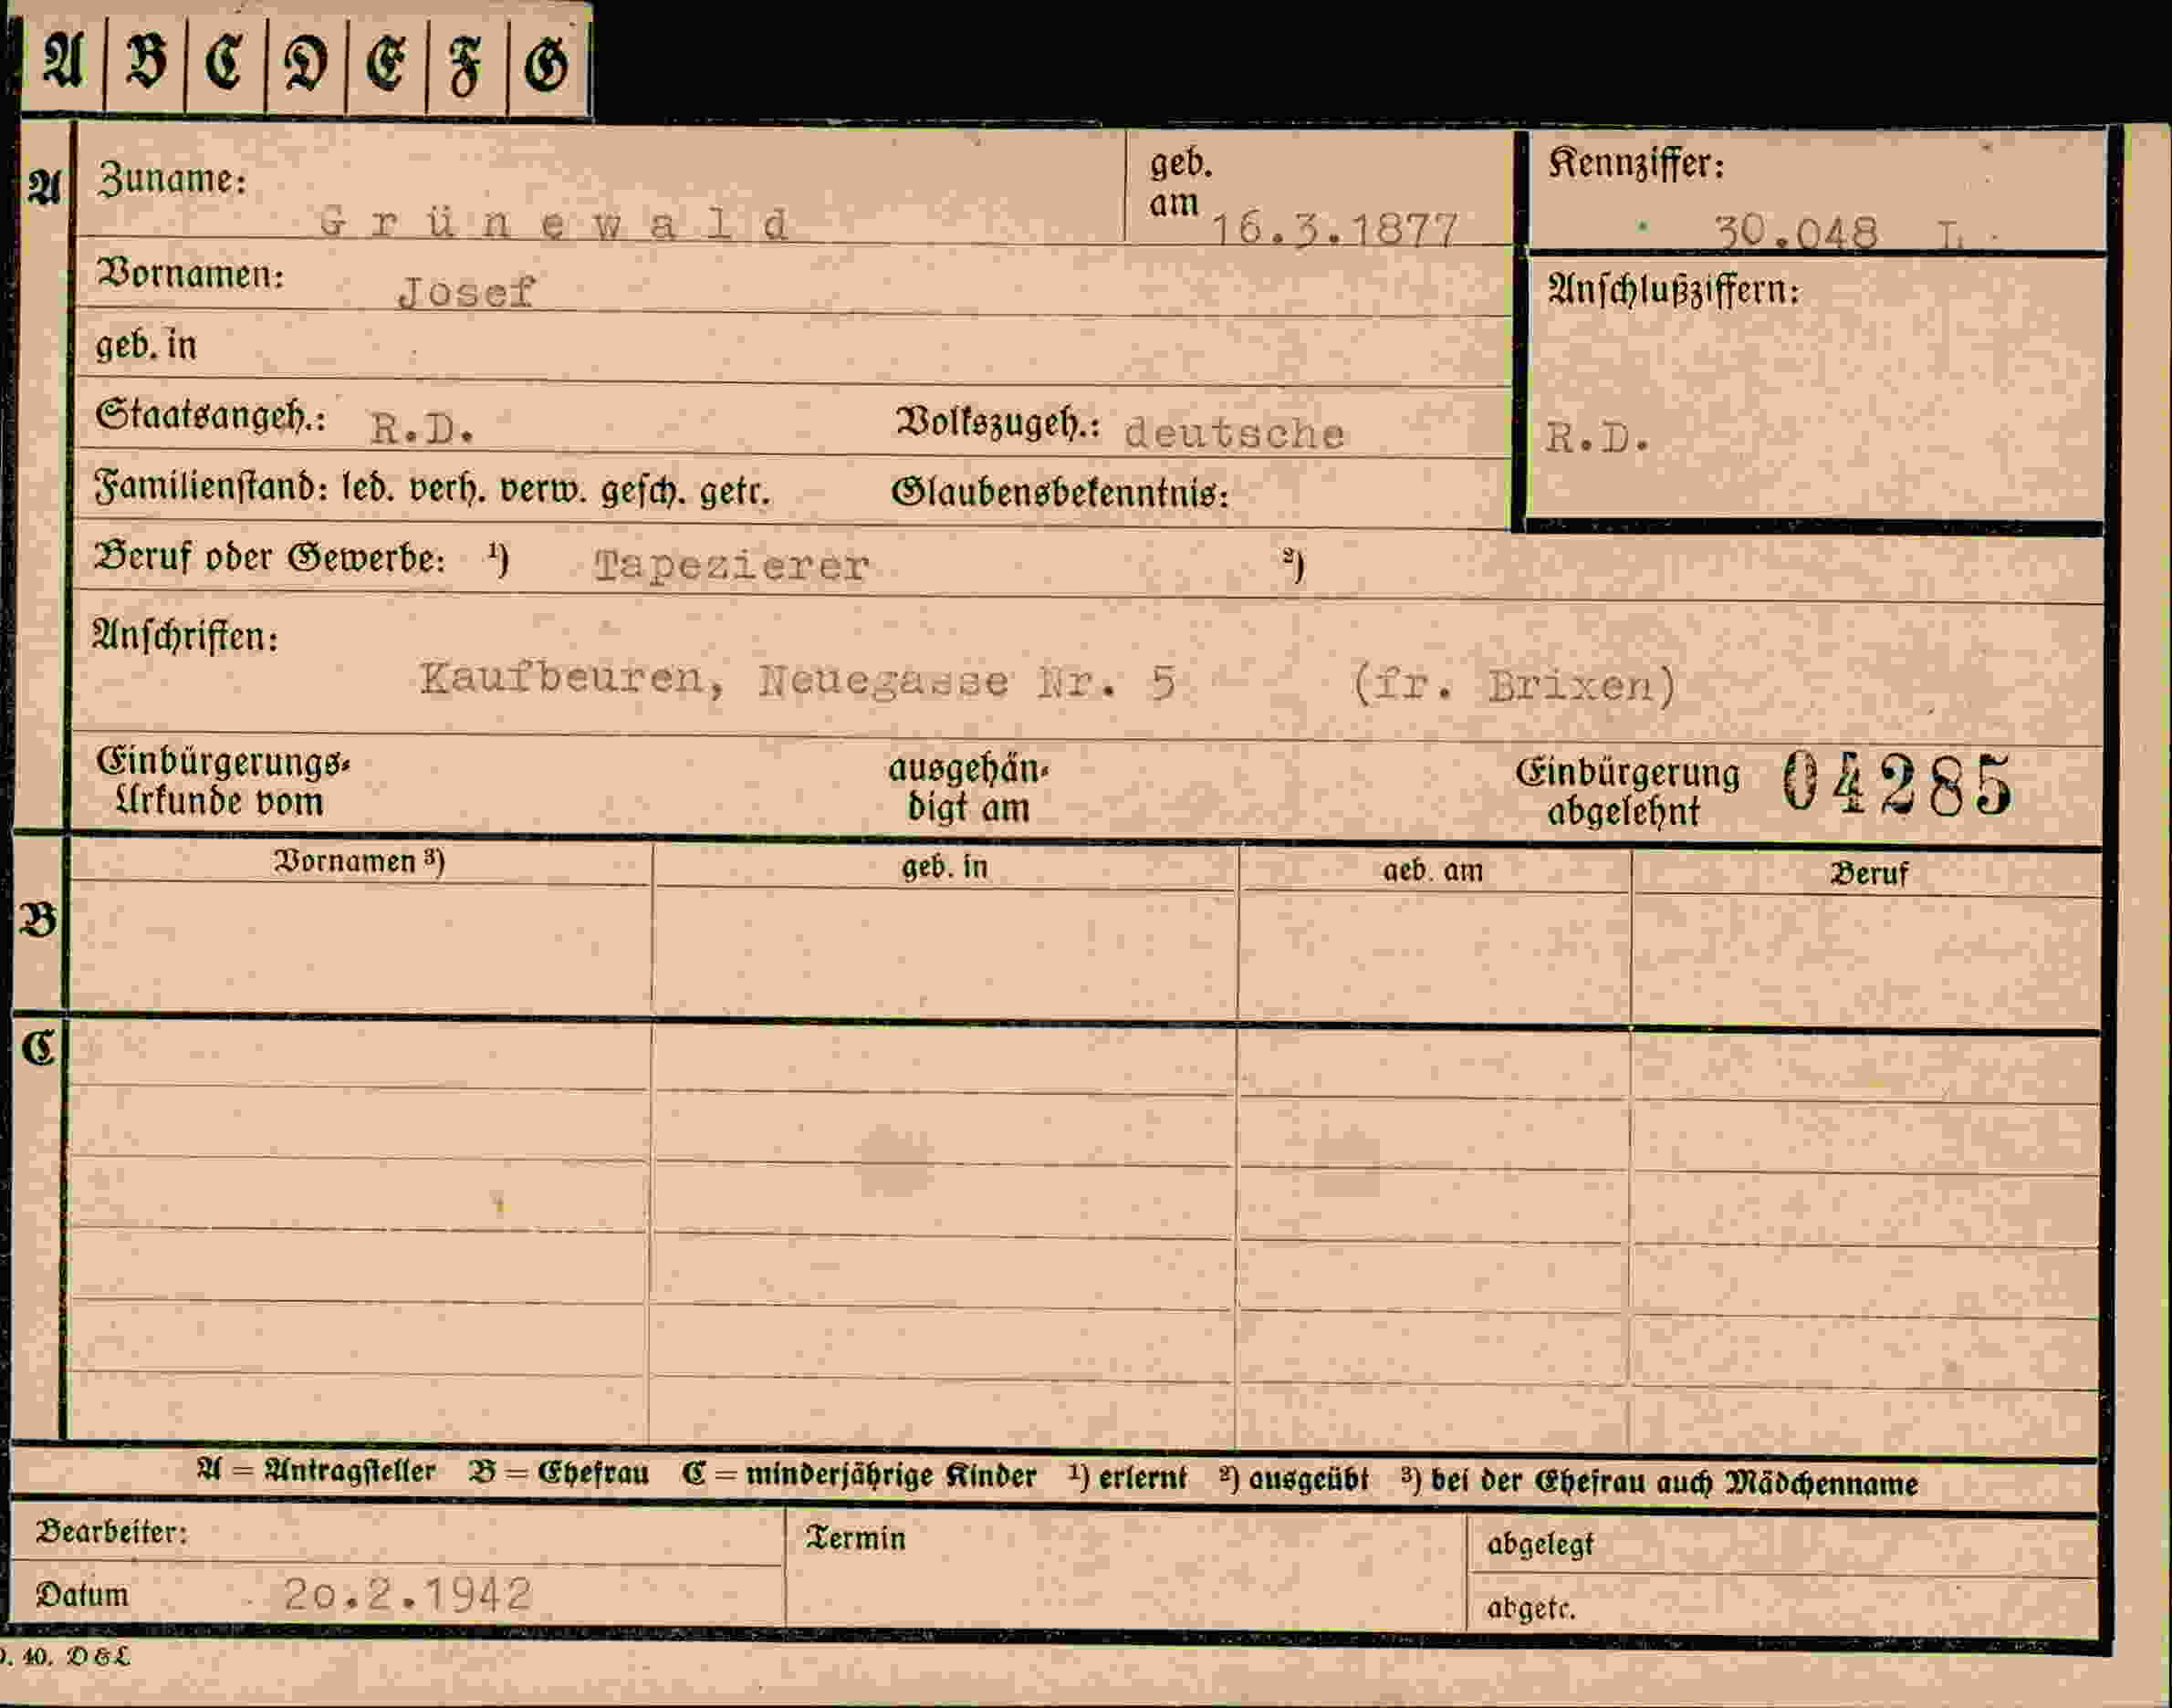 A B C D E F G
A Zuname: Grünewald geb. am 16.3.1877 Kennziffer: 30.048 L.
Vornamen: Josef Anschlußziffern:
geb. in
Staatsangeh.: R.D. Volkszugeh.: deutsche R.D.
Familienstand: led. verh. verw. gesch. getr. Glaubensbekenntnis:
Beruf oder Gewerbe: ¹) Tapezierer ²)
Anschriften:
Kaufbeuren, Neuegasse Nr. 5 (fr. Brixen)
Einbürgerungs- ausgehän- Einbürgerung 04285
Urkunde vom digt am abgelehnt
Vornamen ³) geb. in geb. am Beruf
B
C
A = Antragsteller B = Ehefrau C = minderjährige Kinder ¹) erlernt ²) ausgeübt ³) bei der Ehefrau auch Mädchenname
Bearbeiter: Termin abgelegt
Datum 20.2.1942 abgetr.
40. D&L